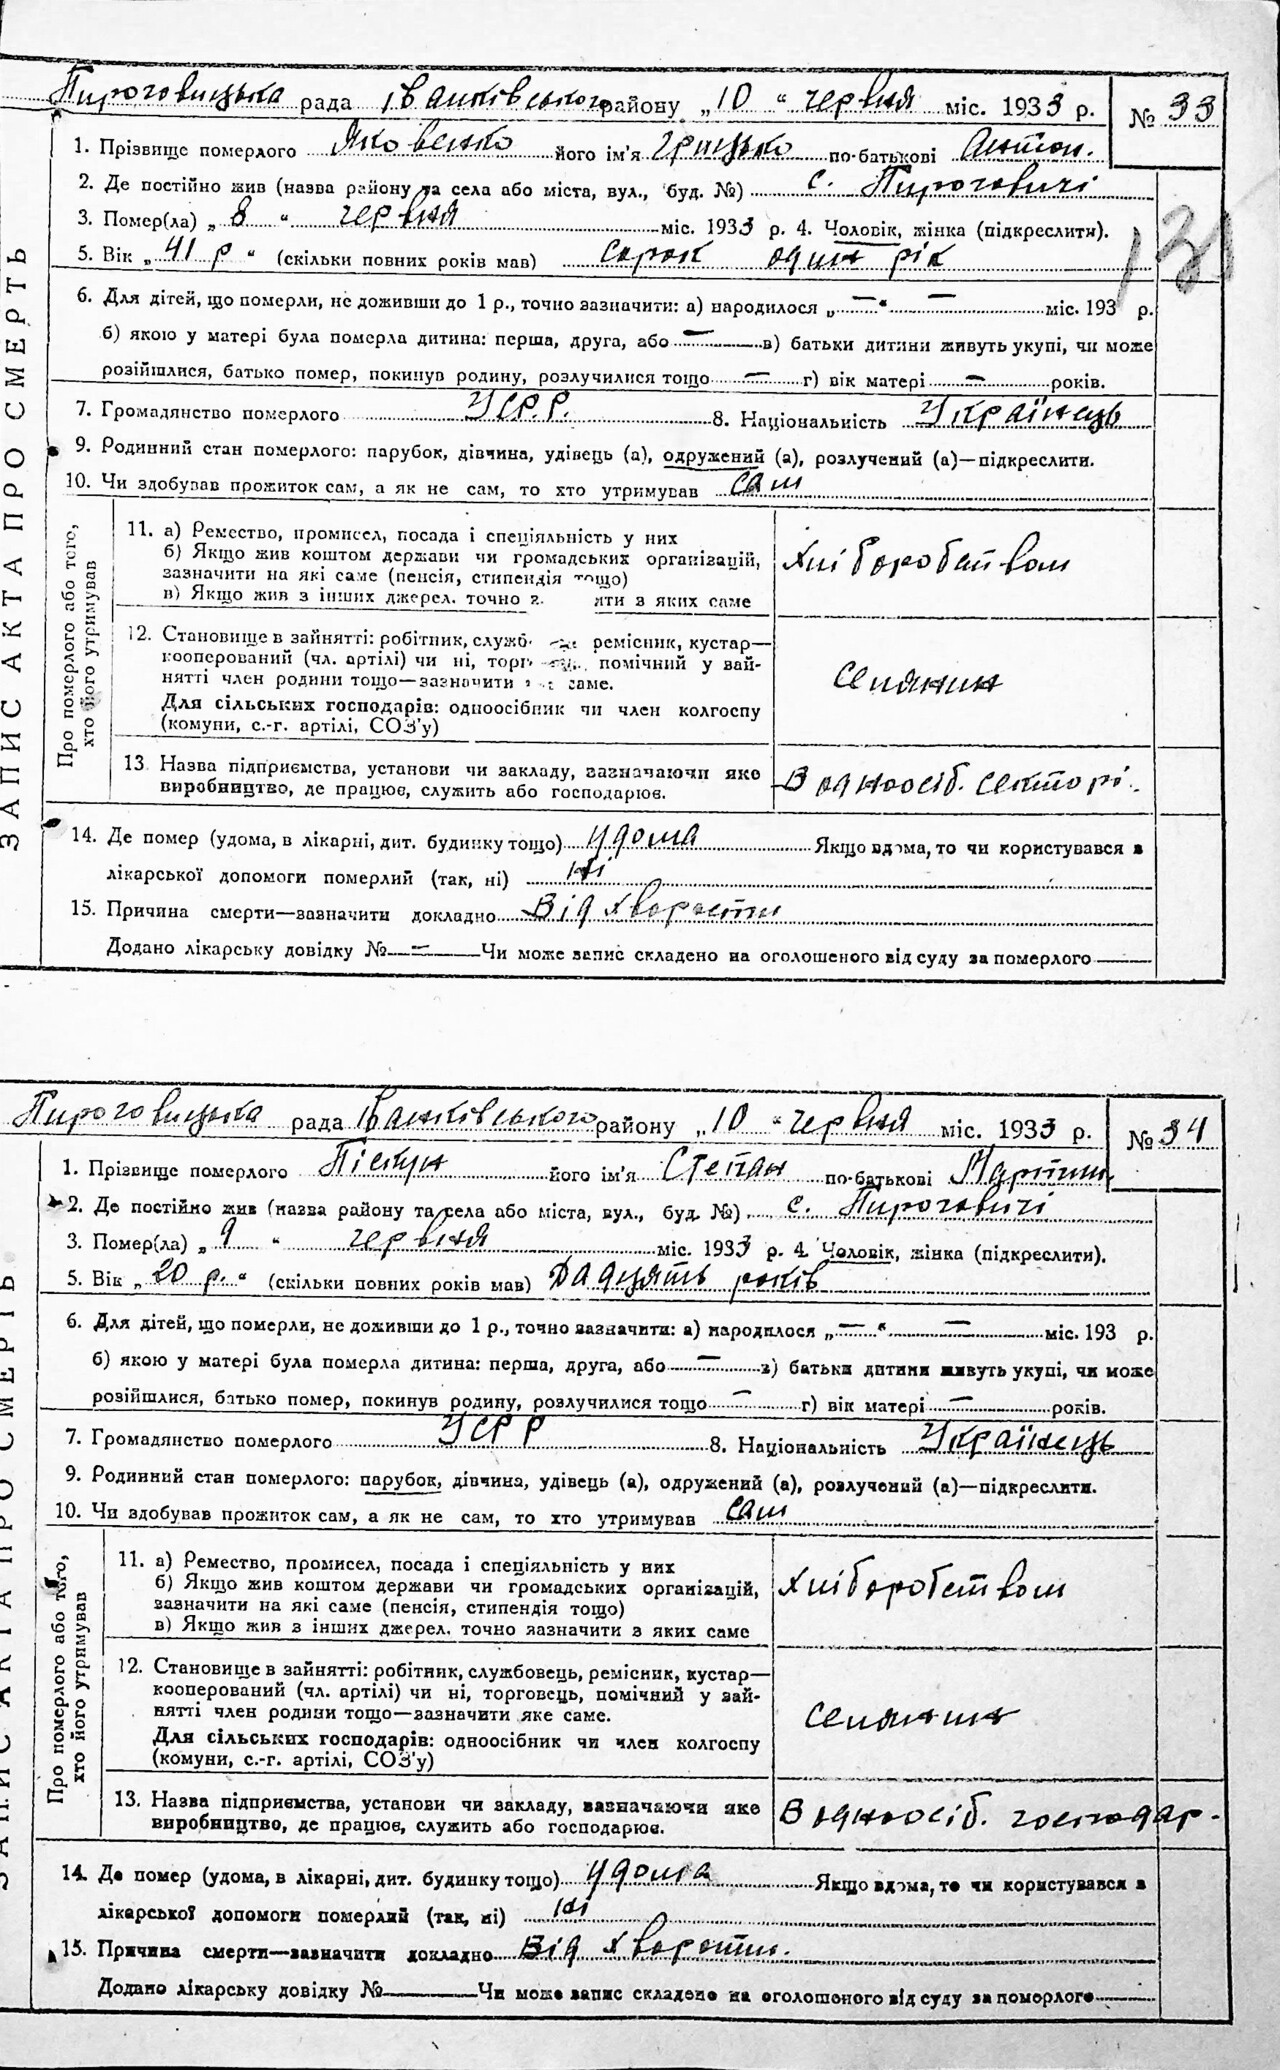 Пироговицька рада Іванківського району „10 “ червня міс. 1933 р. № 33
1. Прізвище померлого Яковенко його ім'я Грицько по-батькові Антон.
2. Де постійно жив (назва району та села або міста, вул., буд. №) с. Пироговичі
3. Помер(ла) „ 8 “ червня міс. 1933 р. 4. Чоловік, жінка (підкреслити).
5. Вік „ 41 р “ (скільки повних років мав) сорок один рік
131
6. Для дітей, що померли, не доживши до 1 р., точно зазначити: а) народилося „—“ — міс. 193 р.
б) якою у матері була померла дитина: перша, друга, або — в) батьки дитини живуть укупі, чи може
розійшлися, батько помер, покинув родину, розлучилися тощо — г) вік матері — років.
7. Громадянство померлого УСР.Р. 8. Національність Українець
9. Родинний стан померлого: парубок, дівчина, удівець (а), одружений (а), розлучений (а)—підкреслити.
10. Чи здобував прожиток сам, а як не сам, то хто утримував сам
ЗАПИС АКТА ПРО СМЕРТЬ
Про померлого або того,
хто його утримував
11. а) Ремество, промисел, посада і спеціяльність у них
б) Якщо жив коштом держави чи громадських організацій,
зазначити на які саме (пенсія, стипендія тощо)
в) Якщо жив з інших джерел. точно з яти з яких саме
Хліборобством
12. Становище в зайнятті: робітник, служб ремісник, кустар—
кооперований (чл. артілі) чи ні, торг помічний у зай-
нятті член родини тощо—зазначити саме.
Для сільських господарів: одноосібник чи член колгоспу
(комуни, с.-г. артілі, СОЗ'у)
селянин
13 Назва підприємства, установи чи закладу, зазначаючи яке
виробництво, де працює, служить або господарює.
В одноосіб. секторі.
14. Де помер (удома, в лікарні, дит. будинку тощо) удома Якщо вдома, то чи користувався з
лікарської допомоги померлий (так, ні) ні
15. Причина смерти—зазначити докладно Від хворости
Додано лікарську довідку № — Чи може запис складено на оголошеного від суду за померлого —
Пироговицька рада Іванківського району „10 “ червня міс. 1933 р. № 34
1. Прізвище померлого Піскун його ім'я Степан по-батькові Мартин.
2. Де постійно жив (назва району та села або міста, вул., буд. №) с. Пироговичі
3. Помер(ла) „ 9 “ червня міс. 1933 р. 4. Чоловік, жінка (підкреслити).
5. Вік „ 20 р. “ (скільки повних років мав) Двадцять років
6. Для дітей, що померли, не доживши до 1 р., точно зазначити: а) народилося „—“ — міс. 193 р.
б) якою у матері була померла дитина: перша, друга, або — в) батьки дитини живуть укупі, чи може
розійшлися, батько помер, покинув родину, розлучилися тощо — г) вік матері — років.
7. Громадянство померлого УСРР 8. Національність Українець
9. Родинний стан померлого: парубок, дівчина, удівець (а), одружений (а), розлучений (а)—підкреслити.
10. Чи здобував прожиток сам, а як не сам, то хто утримував сам
ЗАПИС АКТА ПРО СМЕРТЬ
Про померлого або того,
хто його утримував
11. а) Ремество, промисел, посада і спеціяльність у них
б) Якщо жив коштом держави чи громадських організацій,
зазначити на які саме (пенсія, стипендія тощо)
в) Якщо жив з інших джерел. точно зазначити з яких саме
Хліборобством
12. Становище в зайнятті: робітник, службовець, ремісник, кустар—
кооперований (чл. артілі) чи ні, торговець, помічний у зай-
нятті член родини тощо—зазначити яке саме.
Для сільських господарів: одноосібник чи член колгоспу
(комуни, с.-г. артілі, СОЗ'у)
селянин
13. Назва підприємства, установи чи закладу, зазначаючи яке
виробництво, де працює, служить або господарює.
В одноосіб. господар.
14. Де помер (удома, в лікарні, дит. будинку тощо) удома Якщо вдома, то чи користувався з
лікарської допомоги померлий (так, ні) ні
15. Причина смерти—зазначити докладно Від хворости.
Додано лікарську довідку № — Чи може запис складено на оголошеного від суду за померлого —